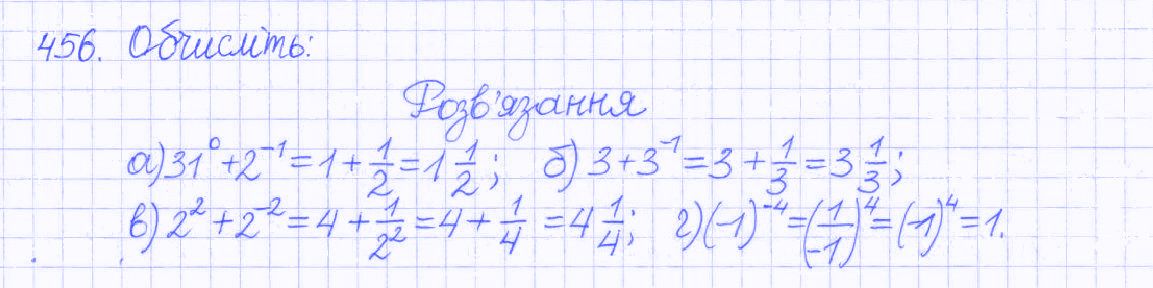 456. Обчисліть:
Розв'язання
а) 31⁰ + 2⁻¹ = 1 + 1/2 = 1 1/2; б) 3 + 3⁻¹ = 3 + 1/3 = 3 1/3;
в) 2² + 2⁻² = 4 + 1/2² = 4 + 1/4 = 4 1/4; г) (-1)⁻⁴ = (1/-1)⁴ = (-1)⁴ = 1.